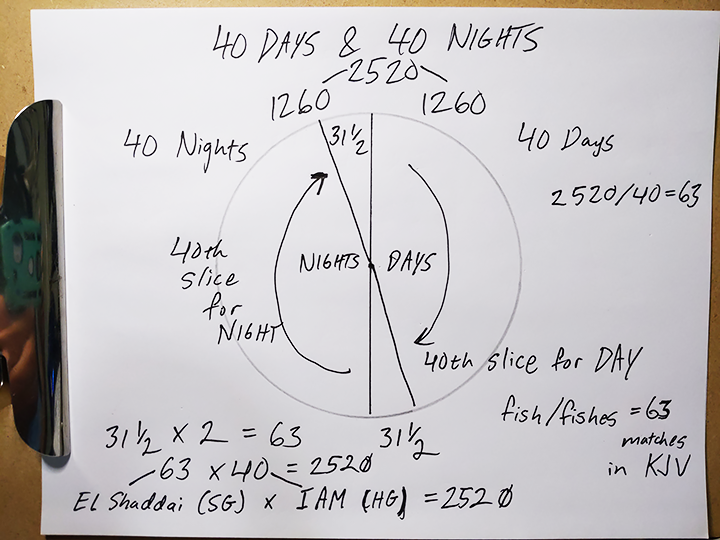 40 DAYS & 40 NIGHTS
2520
1260 1260
31 1/2
40 Nights
40 Days
2520/40=63
NIGHTS DAYS
40th
slice
for
NIGHT
40th slice for DAY
fish/fishes = 63
matches
in KJV
31 1/2 x 2 = 63
31 1/2
63 x 40 = 2520
El Shaddai (SG) x I AM (HG) = 2520